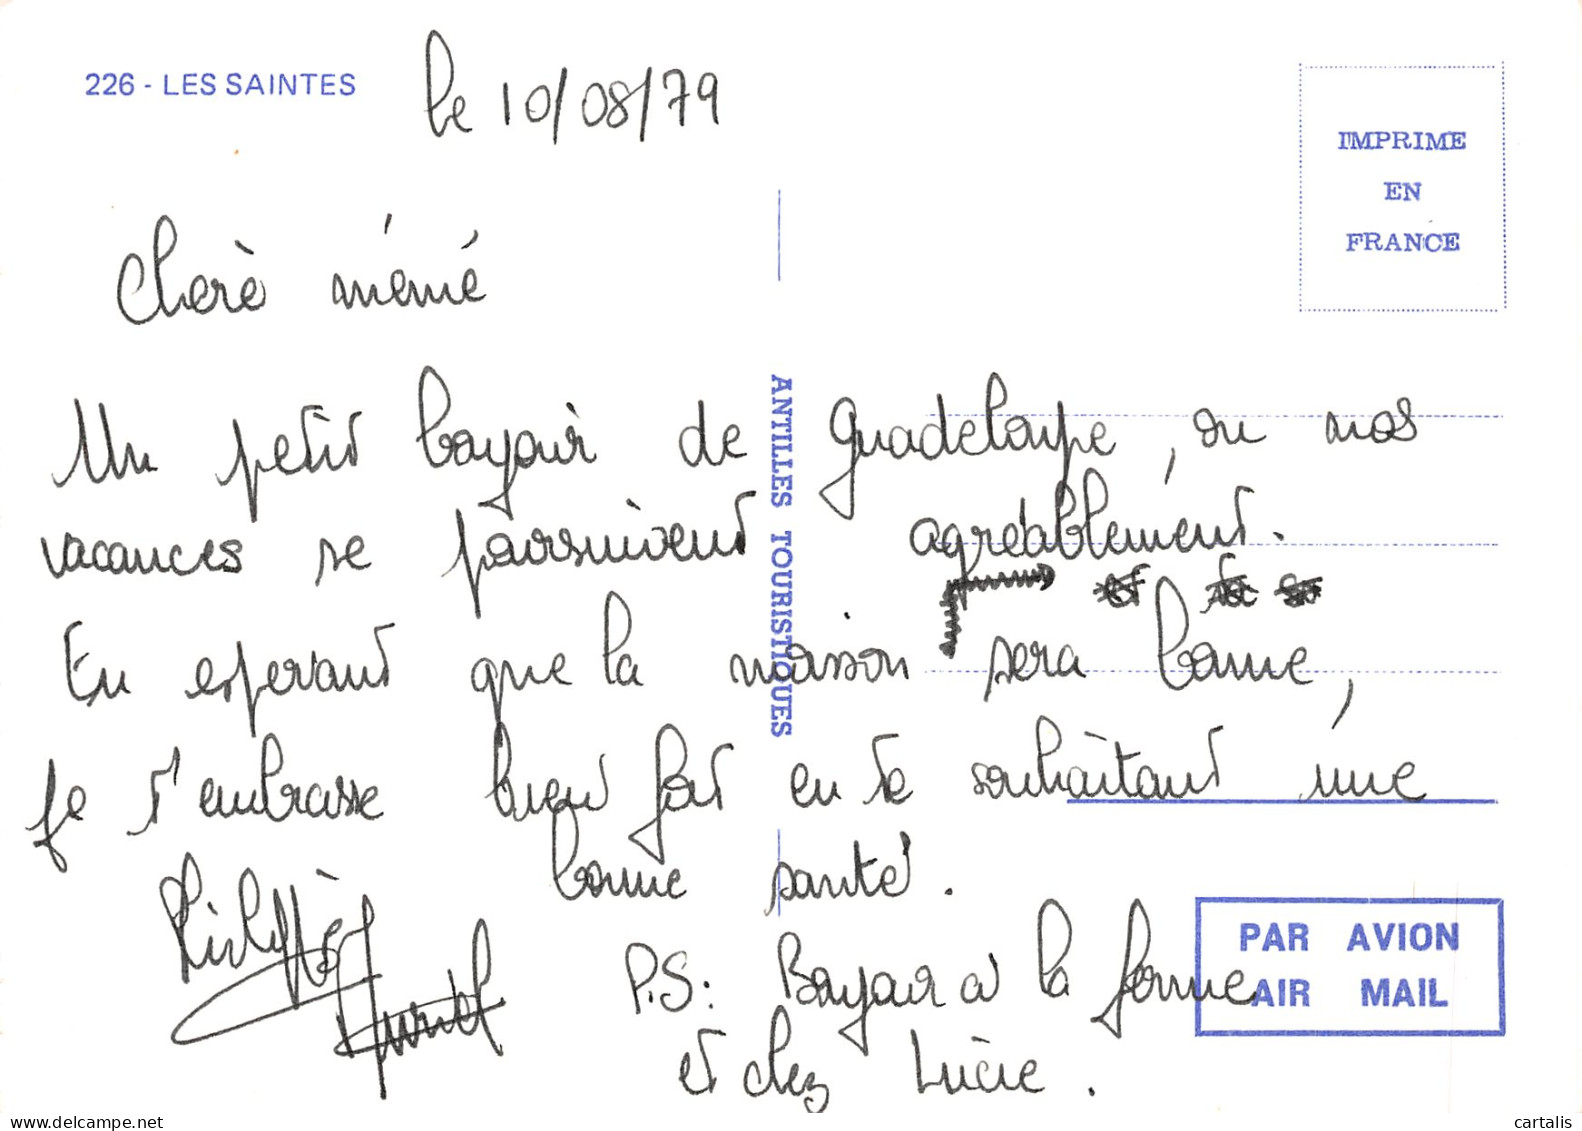 226 - LES SAINTES
le 10/08/79
IMPRIME
EN
FRANCE
Cherè mémé
ANTILLES TOURISTIQUES
Un petit bonjour de Guadeloupe, ou nos
vacances se poursuivent agréablement.
En esperant que la maison sera bonne,
je t'embrasse bien fort en te souhaitant une
bonne santé.
Philippe Muriel
P.S: Bonjour a la ferme
et chez Lucie.
PAR AVION
AIR MAIL
cartalis
delcampe.net